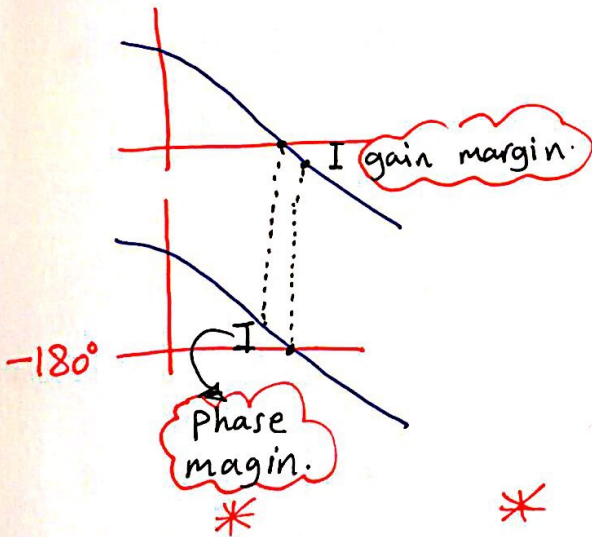 gain margin.
-180°
Phase
magin.